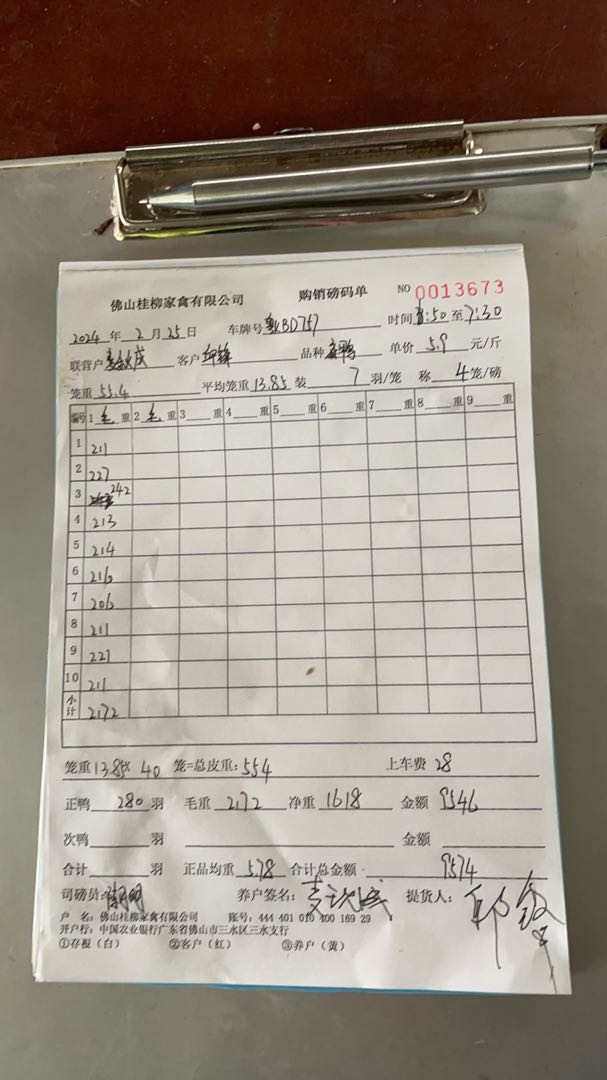 佛山桂柳家禽有限公司 购销磅码单 NO 0013673
2024年2月25日 车牌号 粤BD757 时间 6:50至7:30
联营户 客户 品种 单价 5.9 元/斤
笼重 55.4 平均笼重 13.85 装 7 羽/笼 称 4 笼/磅
编号 1 毛 重 2 毛 重 3 重 4 重 5 重 6 重 7 重 8 重 9 重
1 211
2 227
3 242
4 213
5 214
6 216
7 206
8 211
9 221
10 211
小计 2172
笼重 13.85 x 40 笼=总皮重: 554 上车费 28
正鸭 280 羽 毛重 2172 净重 1618 金额 9546
次鸭 羽 金额
合计 羽 正品均重 5.78 合计总金额 9574
司磅员: 养户签名: 提货人:
户 名: 佛山桂柳家禽有限公司 账号: 444 401 010 400 169 29
开户行: 中国农业银行广东省佛山市三水区三水支行
①存根(白) ②客户(红) ③养户(黄)